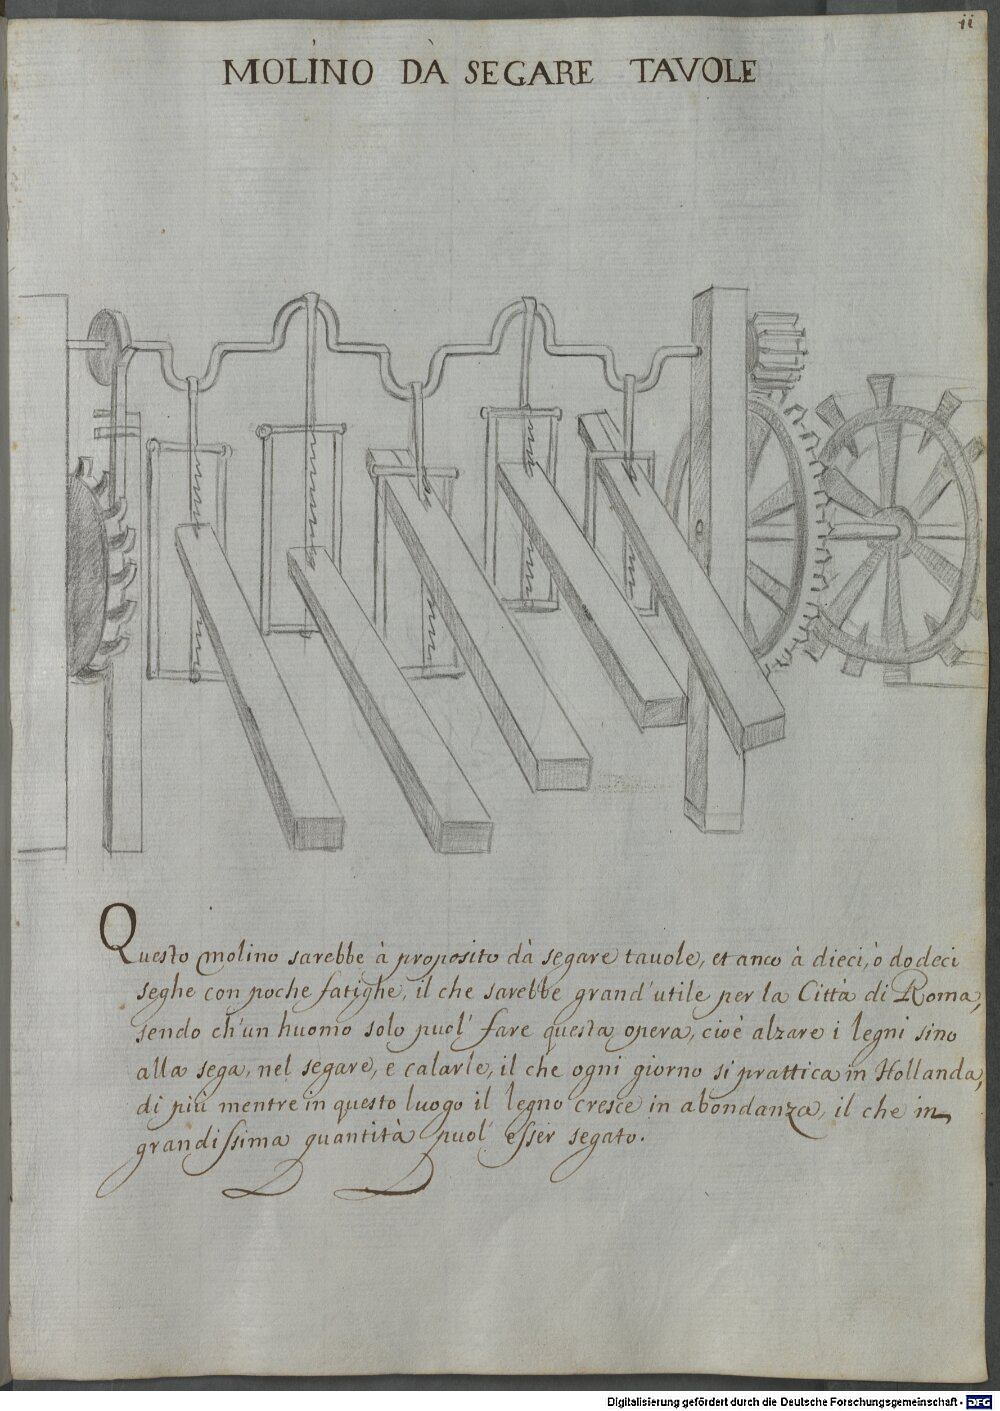 ii
MOLINO DÀ SEGARE TAVOLE
Questo molino sarebbe à proposito dà segare tauole, et anco à dieci, ò dodeci
seghe con poche fatighe, il che sarebbe grand'utile per la Città di Roma,
sendo ch'un huomo solo puol' fare questa opera, cioè alzare i legni sino
alla sega, nel segare, e calarle, il che ogni giorno si prattica in Hollanda,
di più mentre in questo luogo il legno cresce in abondanza, il che in
grandissima quantità puol' esser segato.
Digitalisierung gefördert durch die Deutsche Forschungsgemeinschaft - DFG